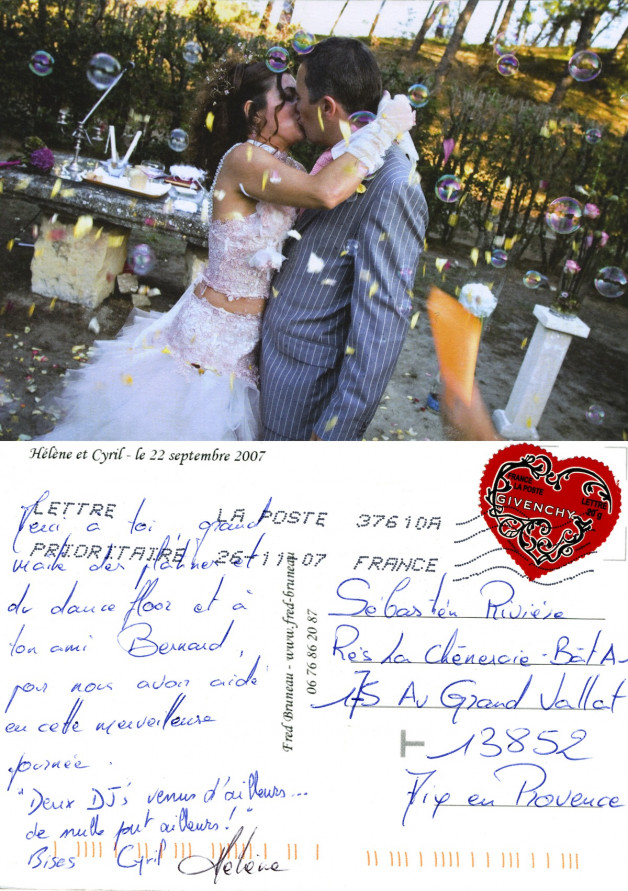 Hélène et Cyril - le 22 septembre 2007
LETTRE LA POSTE 37610A
PRIORITAIRE 26-11-07 FRANCE
FRANCE
LA POSTE
GIVENCHY
LETTRE
20g
Merci à toi, grand
maître des platines et
du dance floor et à
ton ami Bernard,
pour nous avoir aidé
en cette merveilleuse
journée.
"Deux DJ's venus d'ailleurs...
de nulle part ailleurs!"
Bises Cyril Hélène
Fred Bruneau - www.fred-bruneau
06 76 86 20 87
Sébastien Rivière
Rés La Chêneraie - Bât A
175 Av Grand Vallat
T 13852
Aix en Provence